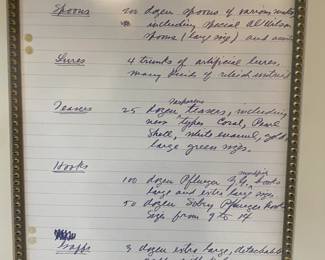 Spoons 200 dozen spoons of various makes
including special Al Wilson
spoons (large size) and
Lures 4 trunks of artificial lures,
many kinds of
Teasers 25 dozen teasers, including
new types Coral, Pearl
Shell, white enamel, gold
large green sizes.
Hooks
100 dozen Pflueger hooks
large and extra large sizes
50 dozen Sobey Pflueger Hooks
Size from 9 to 14
Gaffs 3 dozen extra large, detachable